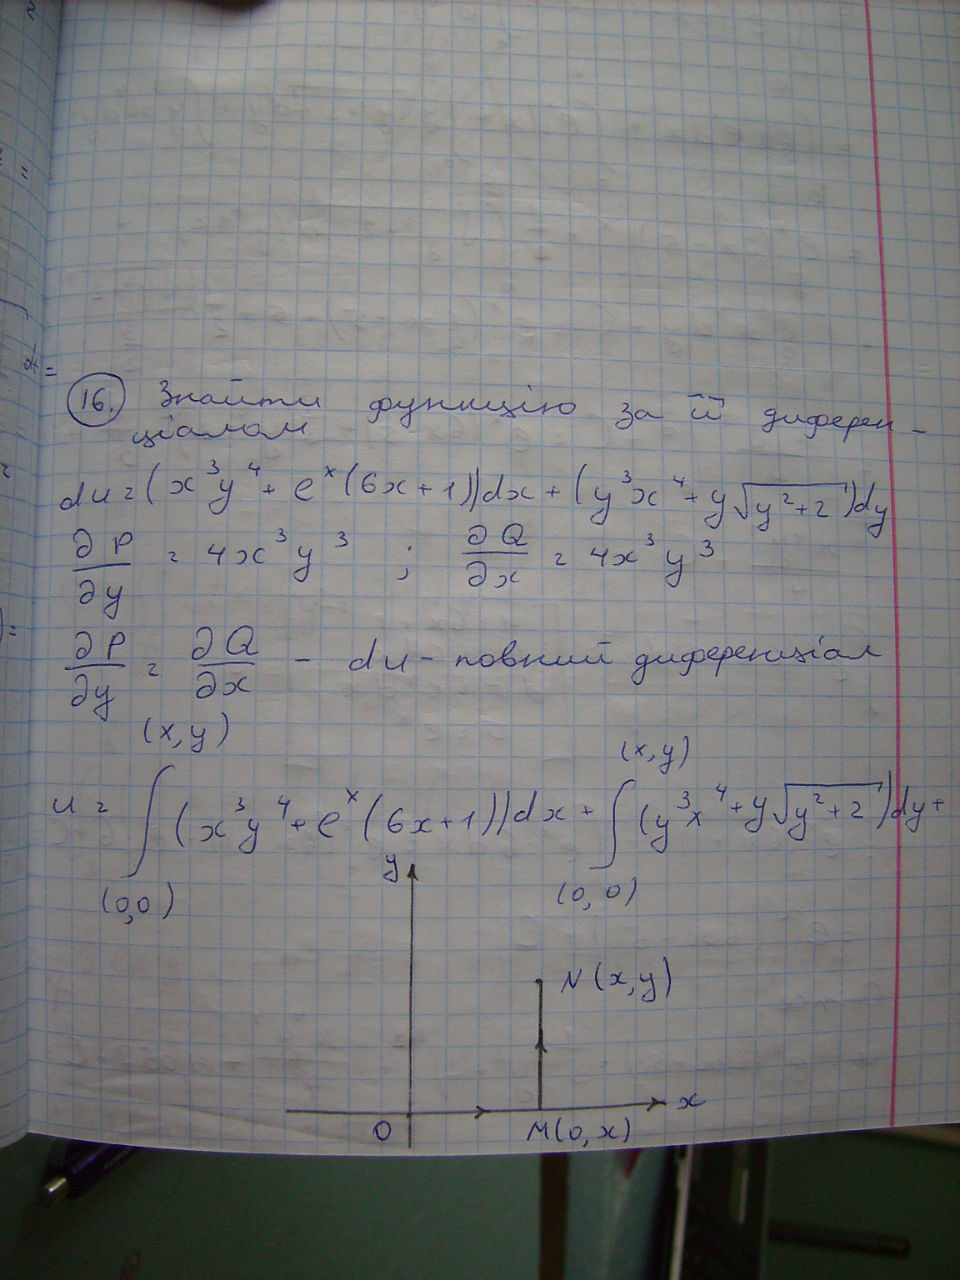 16. Знайти функцію за її диферен-
ціалом
du = (x³y⁴ + eˣ(6x+1))dx + (y³x⁴ + y√(y²+2))dy
∂P/∂y = 4x³y³ ; ∂Q/∂x = 4x³y³
∂P/∂y = ∂Q/∂x - du - повний диференціал
(x,y) (x,y)
u = ∫(x³y⁴ + eˣ(6x+1))dx + ∫(y³x⁴ + y√(y²+2))dy +
(0,0) (0,0)
y
N(x,y)
x
0 M(0,x)
dt =